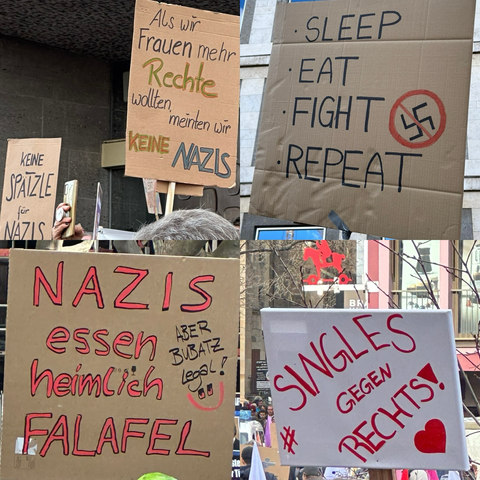 Als wir
Frauen mehr
Rechte
wollten,
meinten wir
KEINE NAZIS
KEINE
SPÄTZLE
für
NAZIS
· SLEEP
· EAT
· FIGHT
· REPEAT
NAZIS
essen
heimlich
FALAFEL
ABER
BUBATZ
legal!
SINGLES
GEGEN
RECHTS!
#
BR